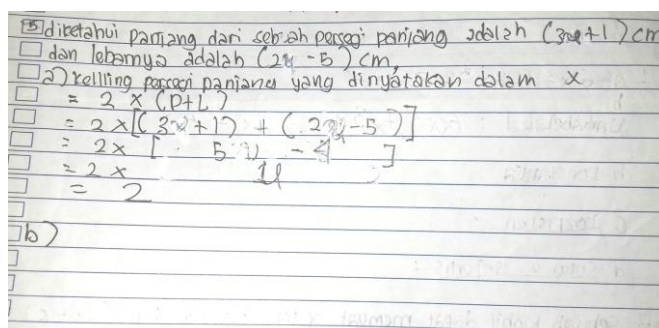 5 diketahui panjang dari sebuah persegi panjang adalah (3x+1) cm
dan lebarnya adalah (2x-5) cm,
a) kelling persegi panjang yang dinyatakan dalam x
= 2 x (P+L)
= 2 x [(3x+1) + (2x-5)]
= 2x [ 5x - 4 ]
= 2 x
= 2
b)